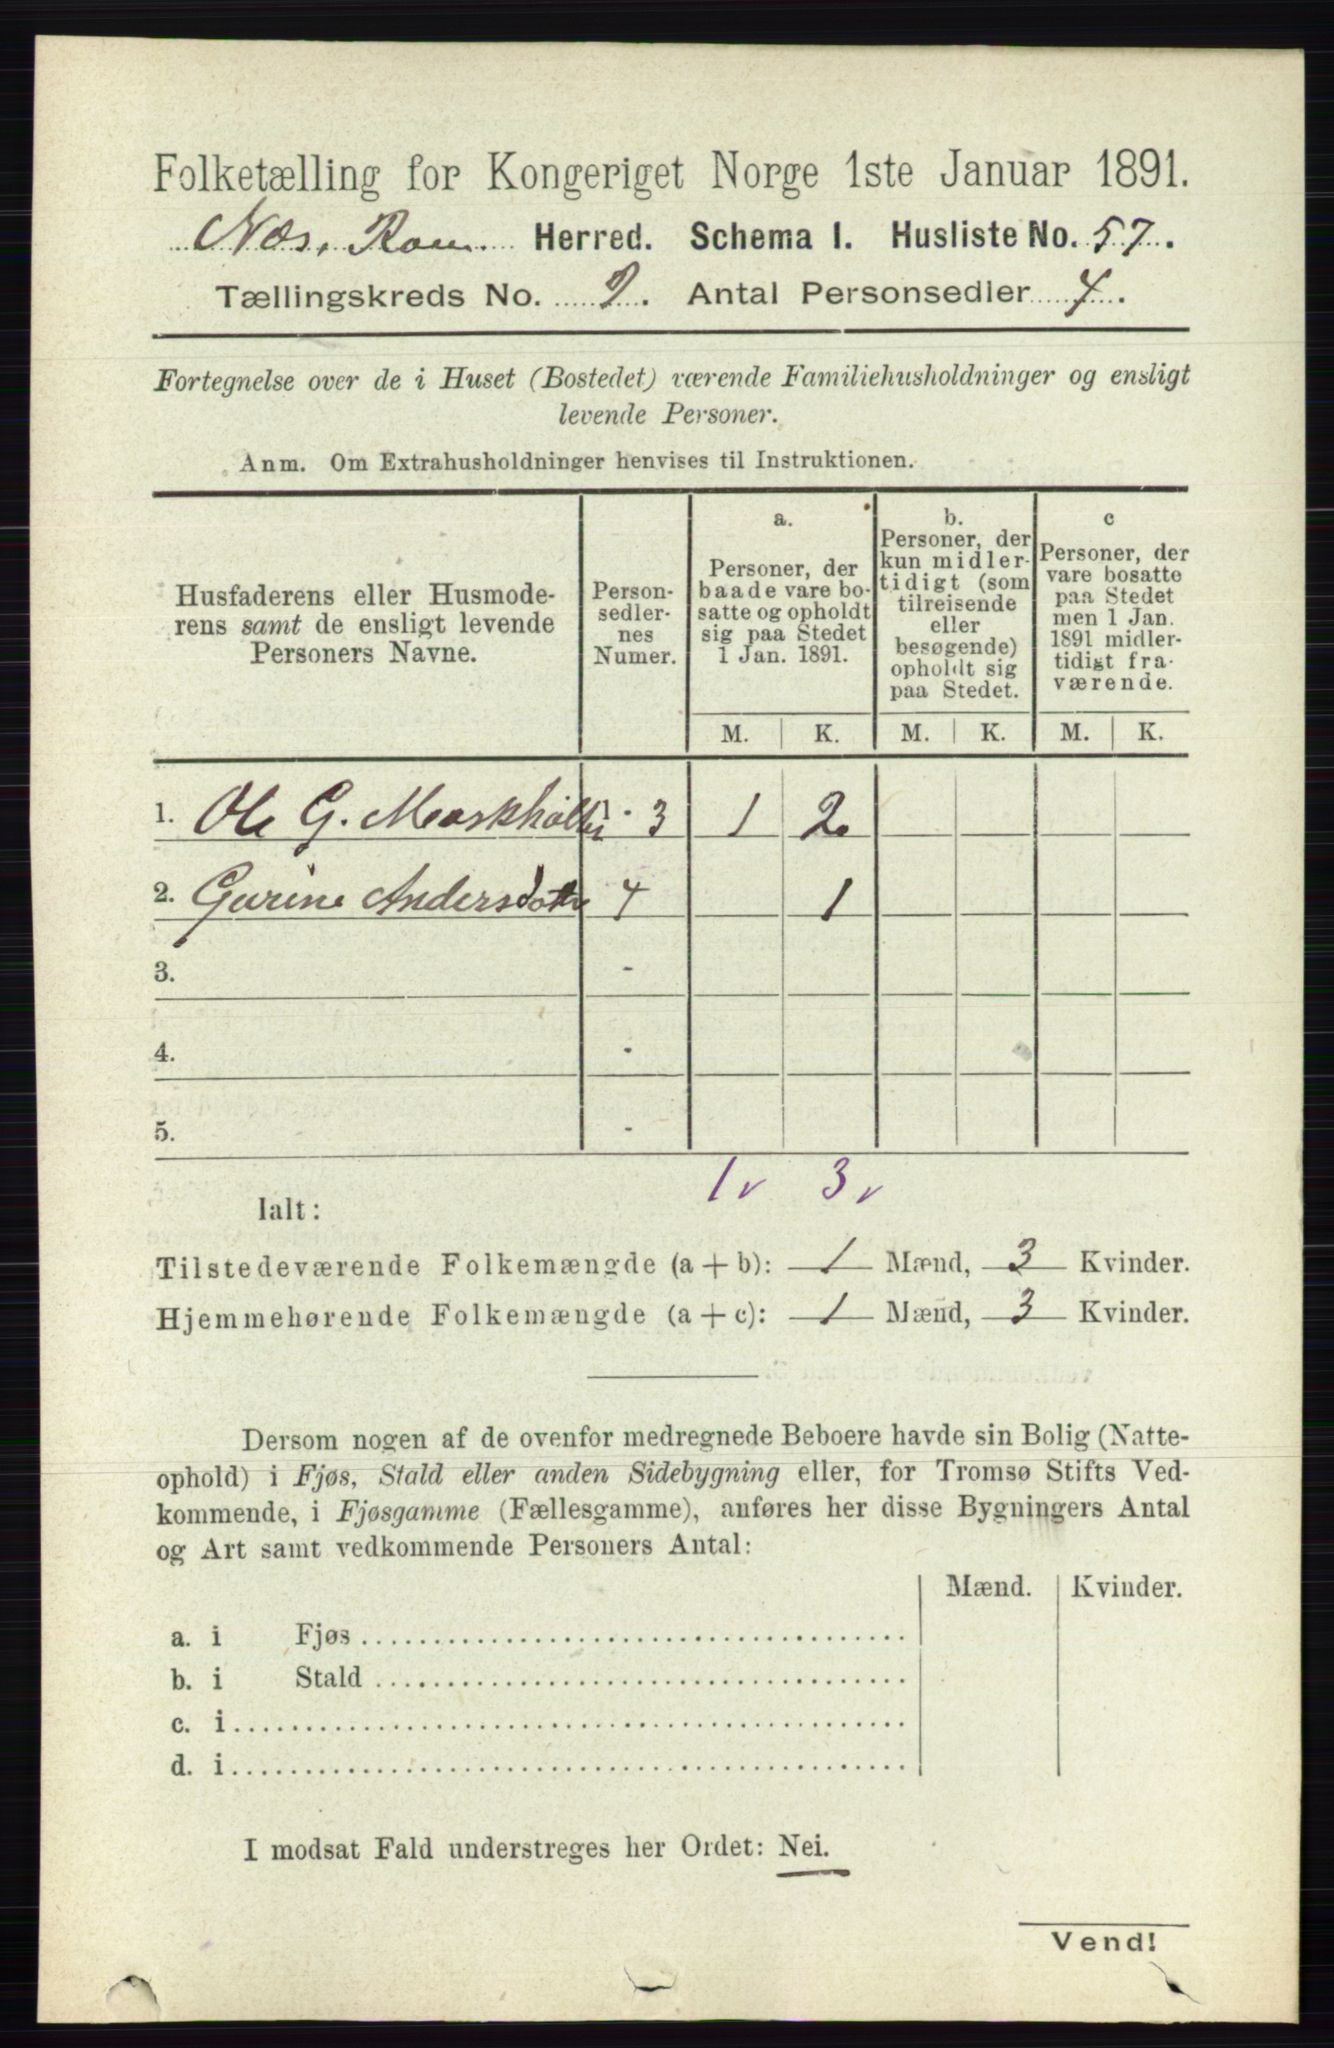 Folketælling for Kongeriget Norge 1ste Januar 1891.
Næs, Rom. Herred. Schema I. Husliste No. 57.
Tællingskreds No. 2. Antal Personsedler 4.
Fortegnelse over de i Huset (Bostedet) værende Familiehusholdninger og ensligt
levende Personer.
Anm. Om Extrahusholdninger henvises til Instruktionen.
Husfaderens eller Husmode-
rens samt de ensligt levende
Personers Navne.
Person-
sedler-
nes
Numer.
a.
Personer, der
baade vare bo-
satte og opholdt
sig paa Stedet
1 Jan. 1891.
b.
Personer, der
kun midler-
tidigt (som
tilreisende
eller
besøgende)
opholdt sig
paa Stedet.
c
Personer, der
vare bosatte
paa Stedet
men 1 Jan.
1891 midler-
tidigt fra-
værende.
M. K. M. K. M. K.
1. Ole G. 1 - 3 1 2
2. Gurine Andersdatter 4 1
3. -
4. -
5. -
1 v 3 v
Ialt:
Tilstedeværende Folkemængde (a + b): 1 Mænd, 3 Kvinder.
Hjemmehørende Folkemængde (a + c): 1 Mænd, 3 Kvinder.
Dersom nogen af de ovenfor medregnede Beboere havde sin Bolig (Natte-
ophold) i Fjøs, Stald eller anden Sidebygning eller, for Tromsø Stifts Ved-
kommende, i Fjøsgamme (Fællesgamme), anføres her disse Bygningers Antal
og Art samt vedkommende Personers Antal:
Mænd. Kvinder.
a. i Fjøs
b. i Stald
c. i
d. i
I modsat Fald understreges her Ordet: Nei.
Vend!